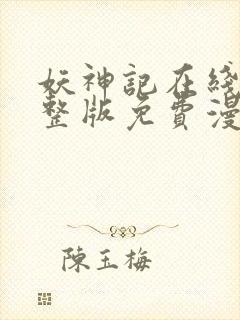 妖神記在綫
整版免費漫
陳玉梅